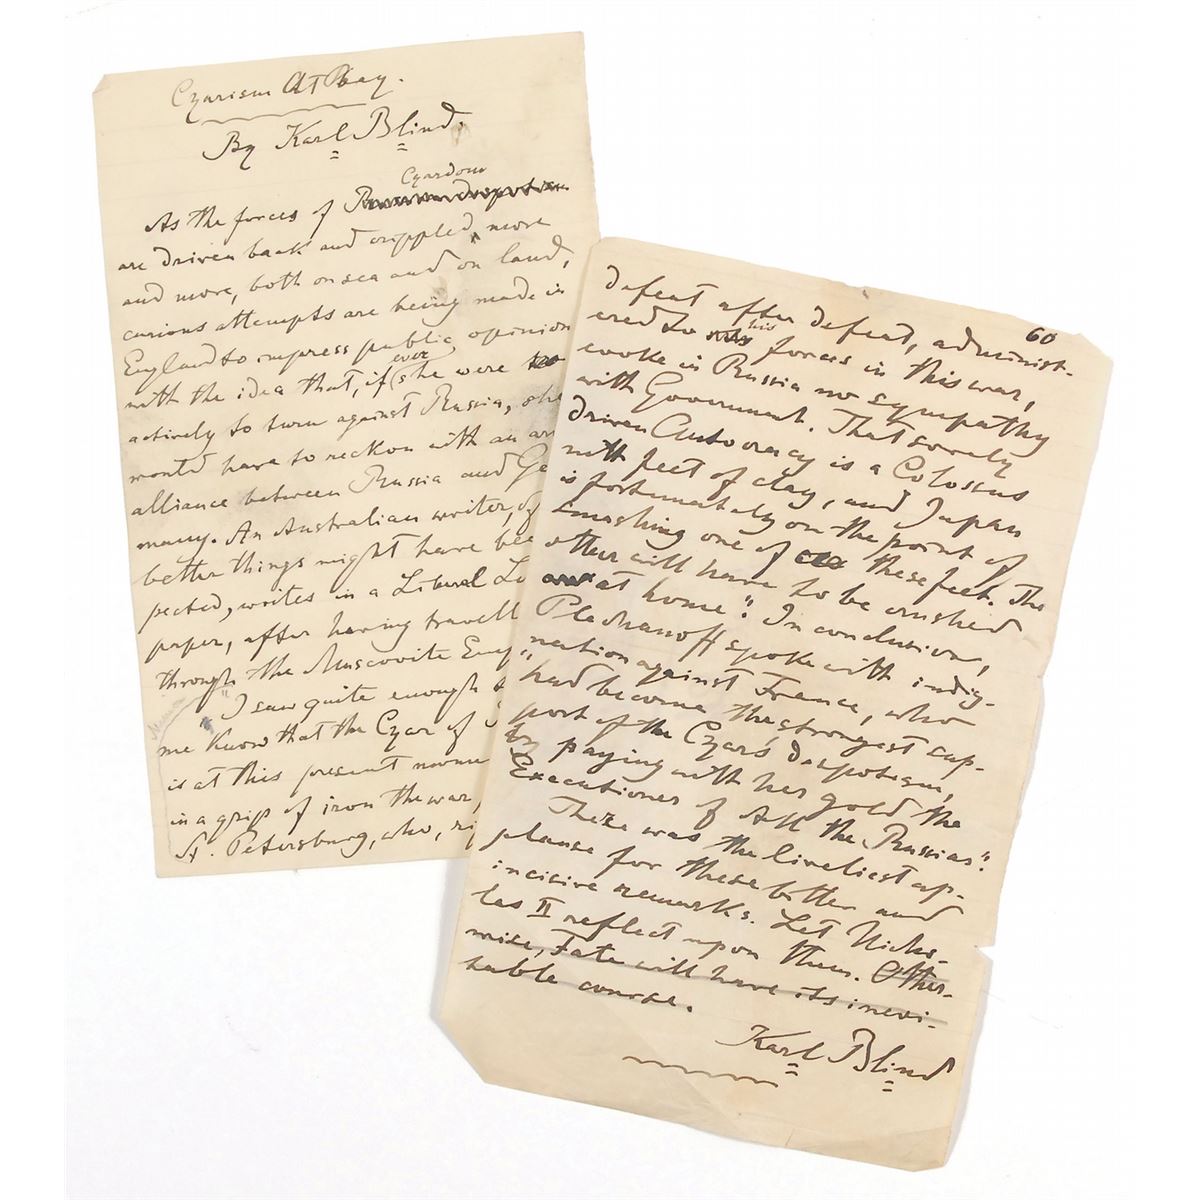 Czarism At Bay.
By Karl Blind.
Czardom
As the forces of Russian despotism
are driven back and crippled, more
and more, both on sea and on land,
curious attempts are being made in
England to impress public opinion
with the idea that, if ever she were
actively to turn against Russia, she
would have to reckon with an
alliance between Russia and Ge
many. An Australian writer, of
better things might have bee
pected, writes in a Liberal Lo
paper, after having travell
through the Muscovite Emp
"I saw quite enough
me know that the Czar of
is at this present mome
in a grip of iron the war,
St. Petersburg, who,
60
defeat after defeat, administ-
ered to his forces in this war,
evoke in Russia no sympathy
with Government. That sorely
driven Autocracy is a Colossus
with feet of clay, and Japan
is fortunately on the point of
smashing one of these feet. The
other will have to be crushed
at home". In conclusion,
Plechanoff spoke with indig-
nation against France, who
"had become the strongest sup-
port of the Czar's despotism,
by paying with her gold the
Executioner of All the Russias".
There was the liveliest ap-
plause for these bitter and
incisive remarks. Let Nicho-
las II reflect upon them. Other-
wise, Fate will have its inevi-
table course.
Karl Blind